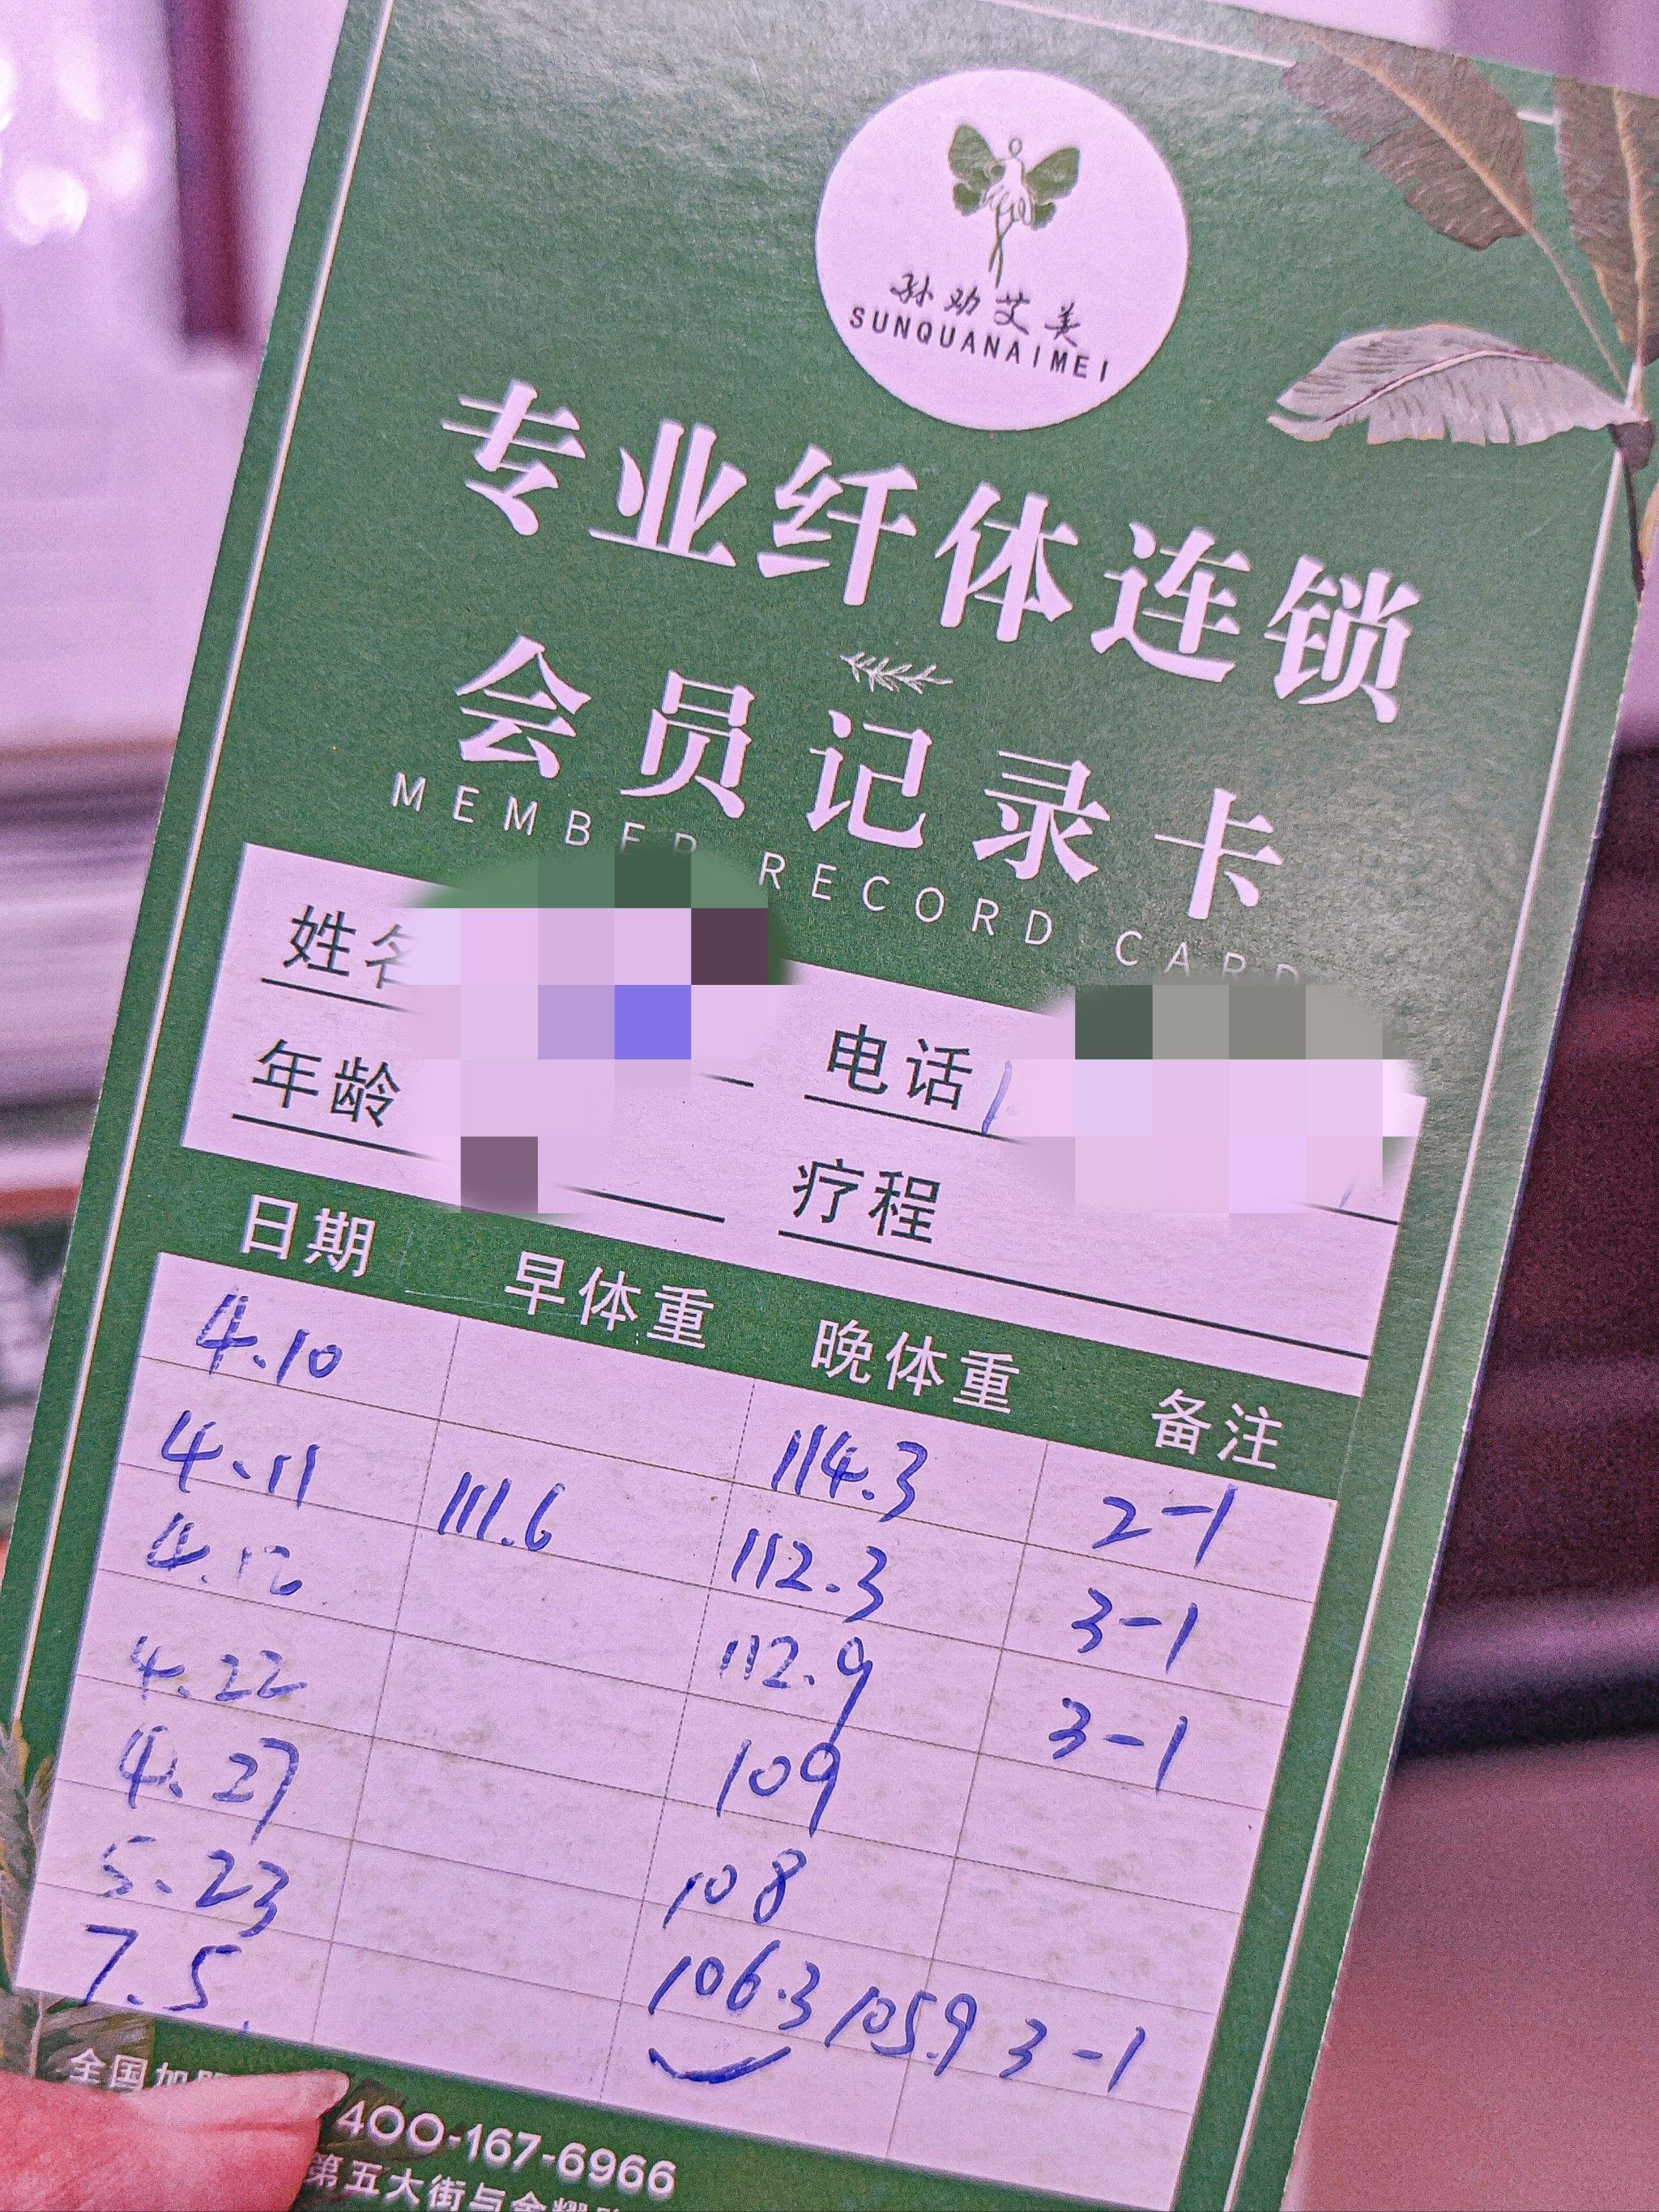 孙劝艾美
SUNQUANAIMEI
专业纤体连锁
会员记录卡
MEMBER RECORD CARD
姓名 电话
年龄 疗程
日期 早体重 晚体重 备注
4.10 114.3 2-1
4.11 111.6 112.3 3-1
4.12 112.9 3-1
4.22 109
4.27 108
5.23 106.3 105.9 3-1
7.5
全国加盟
400-167-6966
第五大街与金